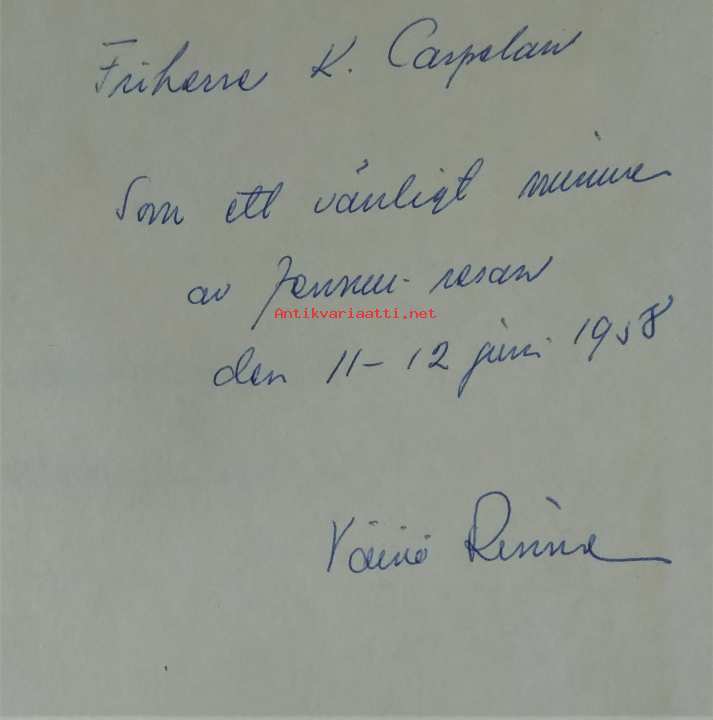 Friherre K. Carpelan
Som ett vänligt minne
av resan
Antikvariaatti.net
den 11-12 juni 1958
Väinö Rinne